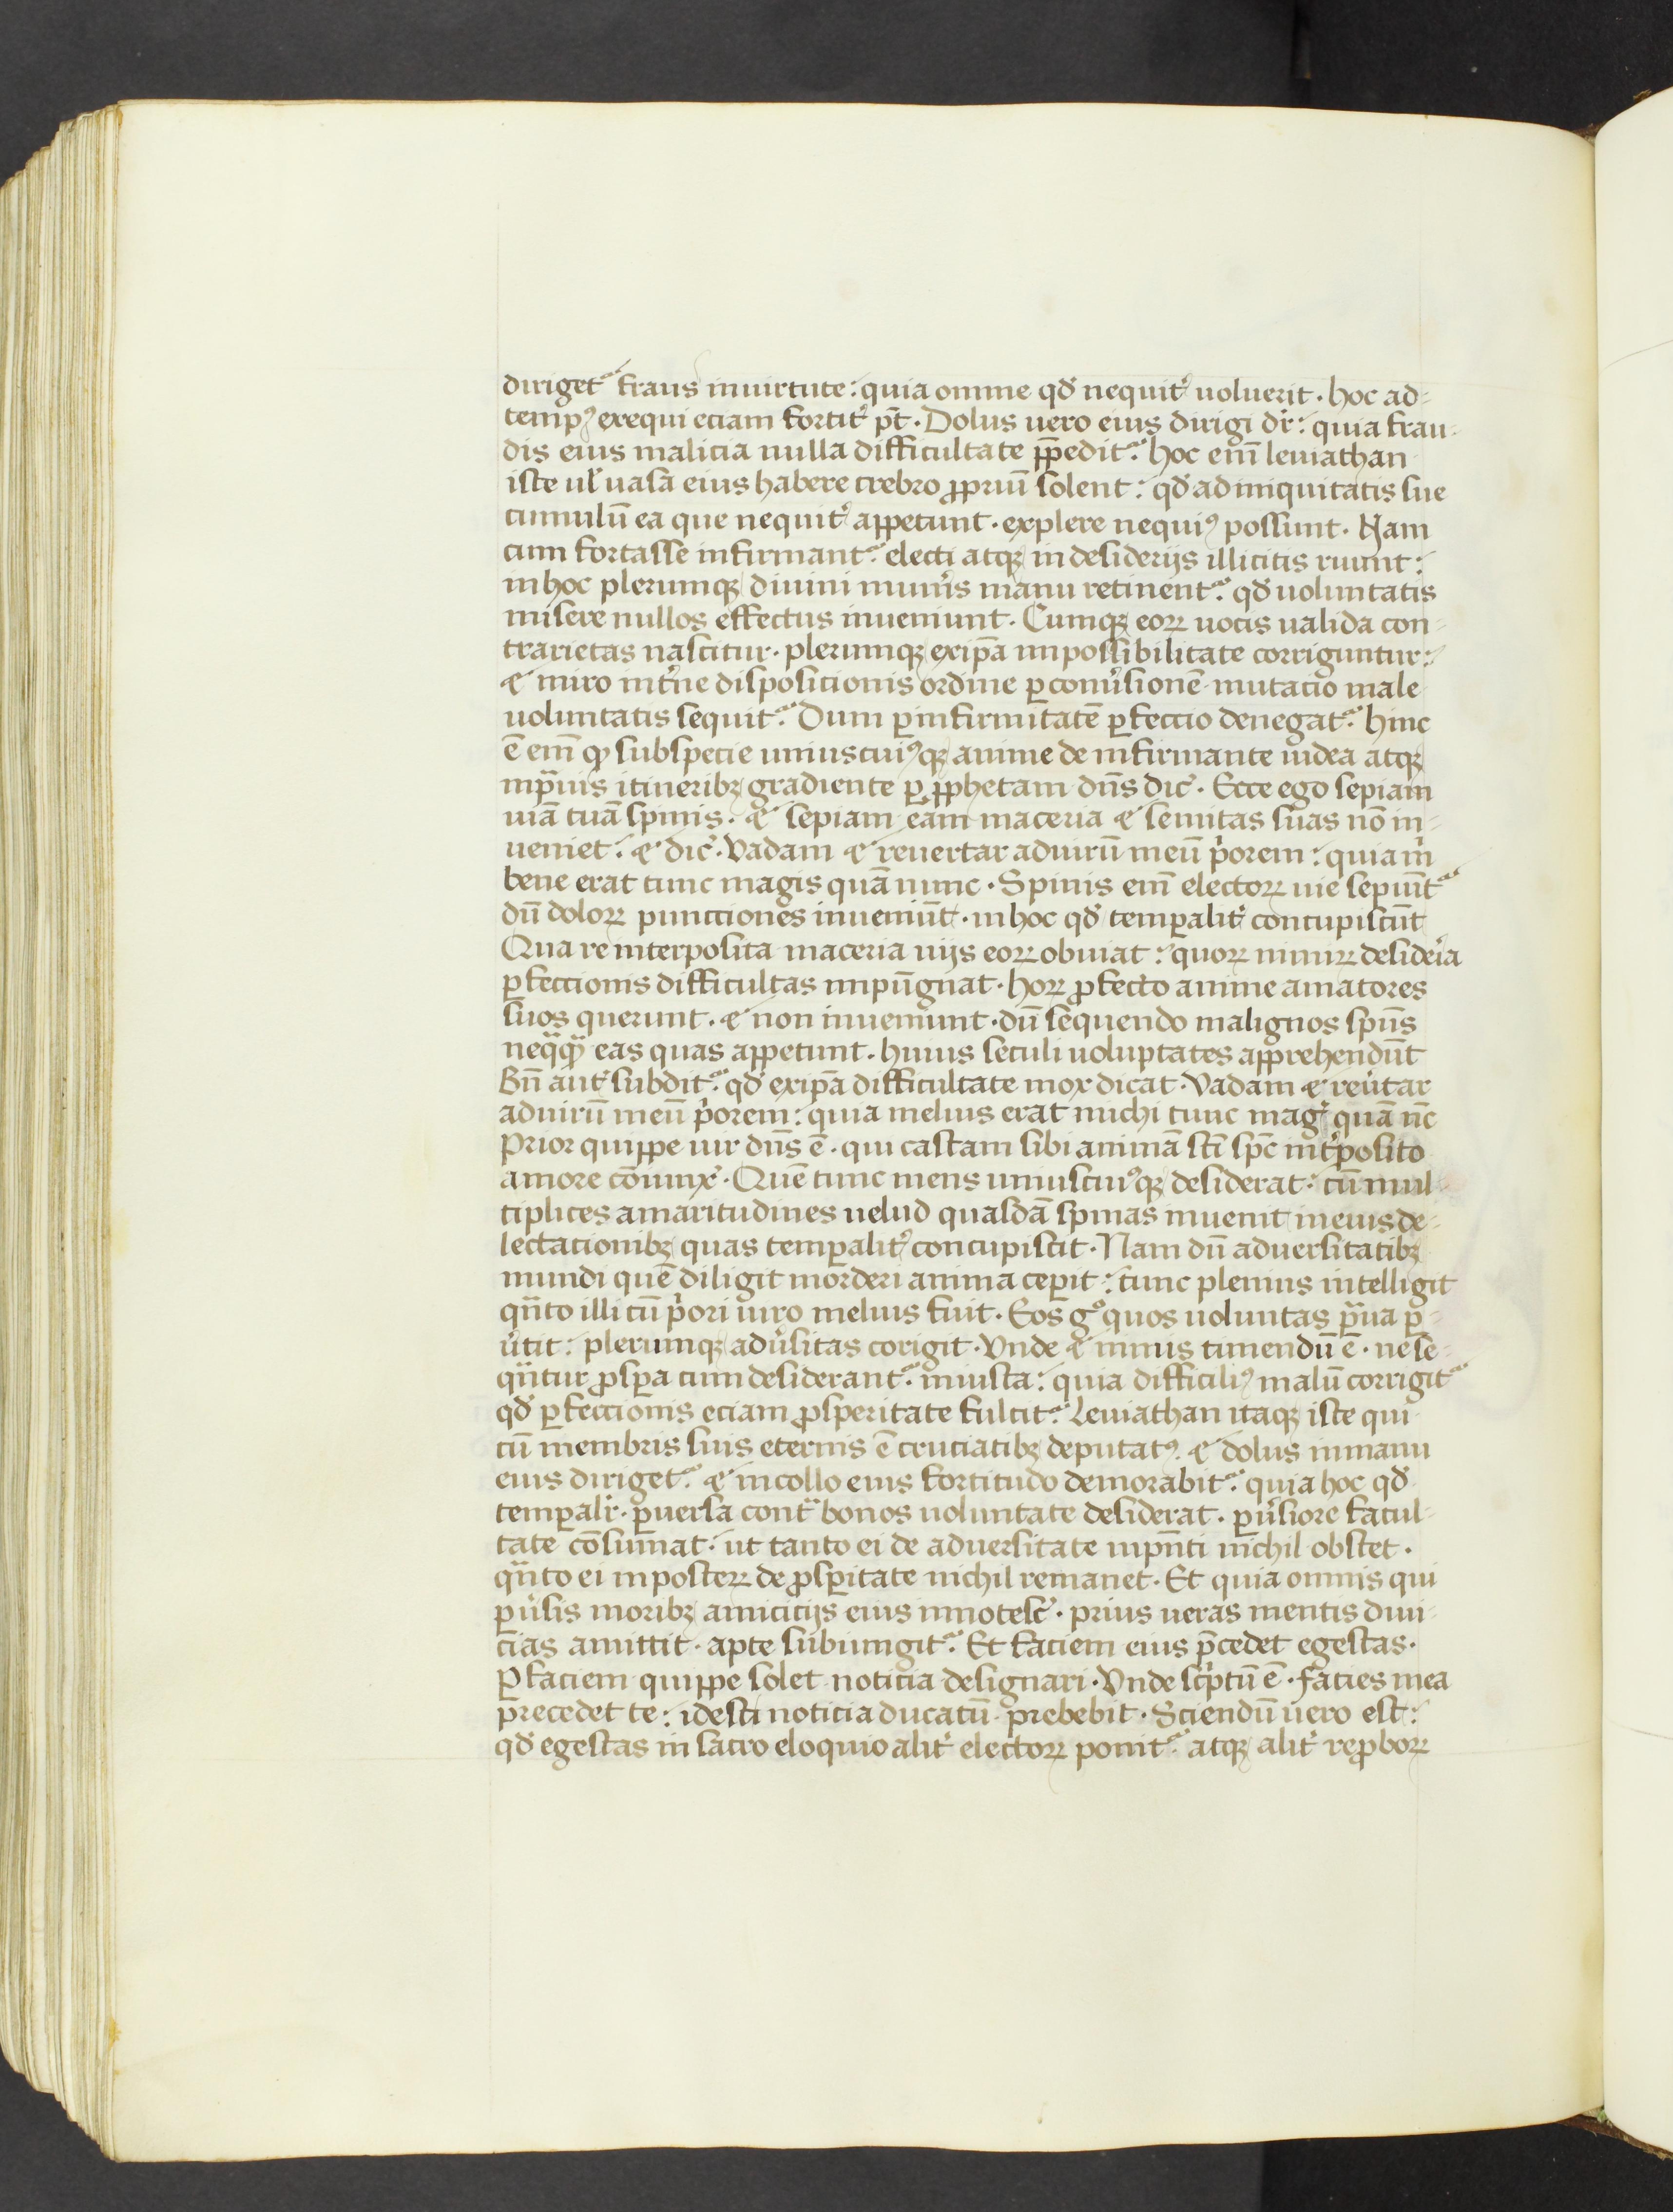 dirigetᷣ fraus inuirtute: quia omne qd̓ nequit̓ uoluerit. hoc ad-
tempꝰ exequi eciam fortit̓ pt̄. Dolus uero eius dirigi dr̓: quia frau-
dis eius malicia nulla difficultate p̄peditᷣ. hoc eni᷒ leuiathan
iste ul̓ uasa eius habere crebro ꝓpriū solent: qd̓ ad iniquitatis sue
cumulū ea que nequit̓ appetunt. explere nequiꝰ possunt. Nam
cum fortasse infirmantᷣ electi atqꝫ in desiderijs illicitis ruunt:
inhoc plerumqꝫ diuini mun̓is manu retinentᷣ. qd̓ uoluntatis
misere nullos effectus inueniunt. Cumqꝫ eoꝝ uocis ualida con-
trarietas nascitur. plerumqꝫ exip̄a inpossibilitate corriguntur:
⁊ miro int̓ne disposicionis ordine ꝑconu̓sionē mutacio male
uoluntatis sequitᷣ. Dum ꝑinfirmitatē ꝑfeccio denegatᷣ. hinc
ē em̄ ꝙ subspecie uniuscuiꝰqꝫ anime de infirmante iudea atqꝫ
inpᷓuis itineribꝫ gradiente ꝑ ꝓphetam dn̄s dic̓. Ecce ego sepiam
uiā tuā spinis. ⁊ sepiam eam maceria ⁊ semitas suas nō in-
ueniet. ⁊ dic̓. Vadam ⁊ reuertar aduirū meū p̓orem: quia m̓
bene erat tunc magis quā nunc. Spinis em̄ electoꝝ uie sepiūtᷣ
dū doloꝝ puncciones inueniūt. inhoc qd̓ temꝑalit̓ concupiscūt
Qua re interposita maceria uijs eoꝝ obuiat: quoꝝ nimiꝝ desideria
ꝑfeccionis difficultas inpūgnat. hoꝝ ꝓfecto anime amatores
suos querunt. ⁊ non inueniunt. dū sequendo malignos spūs
neqᷓꝙᷓ eas quas appetunt. huius seculi uoluptates apprehendūt
Bn̄ aut̓ subditᷣ. qd̓ exip̄a difficultate mox dicat. Vadam ⁊ reu̓tar
aduirū meū p̓orem: quia melius erat michi tunc mag̓ quā nc̄
Prior quippe uir dn̄s ē. qui castam sibi animā sc̄i sp̄c int̓posito
amore cōiunx̓. Quē tunc mens uniuscuiꝰqꝫ desiderat: cū mul-
tiplices amaritudines uelud quasdā spinas inuenit ineius de-
lectacionibꝫ quas temꝑalit̓ concupiscit. Nam dū aduersitatibꝫ
mundi quē diligit morderi anima ceperit: tunc plenius intelligit
qᷓnto illi cū p̓ori uiro melius fuit. Eos gͦ quos uoluntas pᷓua ꝑ-
u̓tit: plerumqꝫ adu̓sitas corigit. Vnde ⁊ nimis timendū ē. ne se-
qᷓntur ꝓsꝑa cum desiderantᷣ iniusta: quia difficiliꝰ malū corrigitᷣ
qd̓ ꝑfeccionis eciam ꝓsperitate fulcitᷣ. Leuiathan itaqꝫ iste qui
cū membris suis eternis ē cruciatibꝫ deputatꝰ. ⁊ dolus inmanu
eius dirigetᷣ. ⁊ incollo eius fortitudo demorabitᷣ. quia hoc qd̓
temꝑalr̓. ꝑuersa contᷓ bonos uoluntate desiderat. ꝑu̓siore facul-
tate cōsūmat. ut tanto ei de aduersitate inpn̄ti nichil obstet.
qᷓnto ei inposteꝝ de ꝓsꝑitate nichil remanet. Et quia omnis qui
ꝑu̓sis moribꝫ amicicijs eius innotesc̓. prius ueras mentis diui-
cias amittit. apte subiungitᷣ. Et faciem eius p̄cedet egestas.
ꝑ faciem quippe solet noticia designari. Vnde sc̓ptū ē. facies mea
precedet te: idest noticia ducatū prebebit. Sciendū uero est:
qd̓ egestas in sacro eloquio alit̓ electoꝝ ponitᷣ. atqꝫ alit̓ reꝓboꝝ